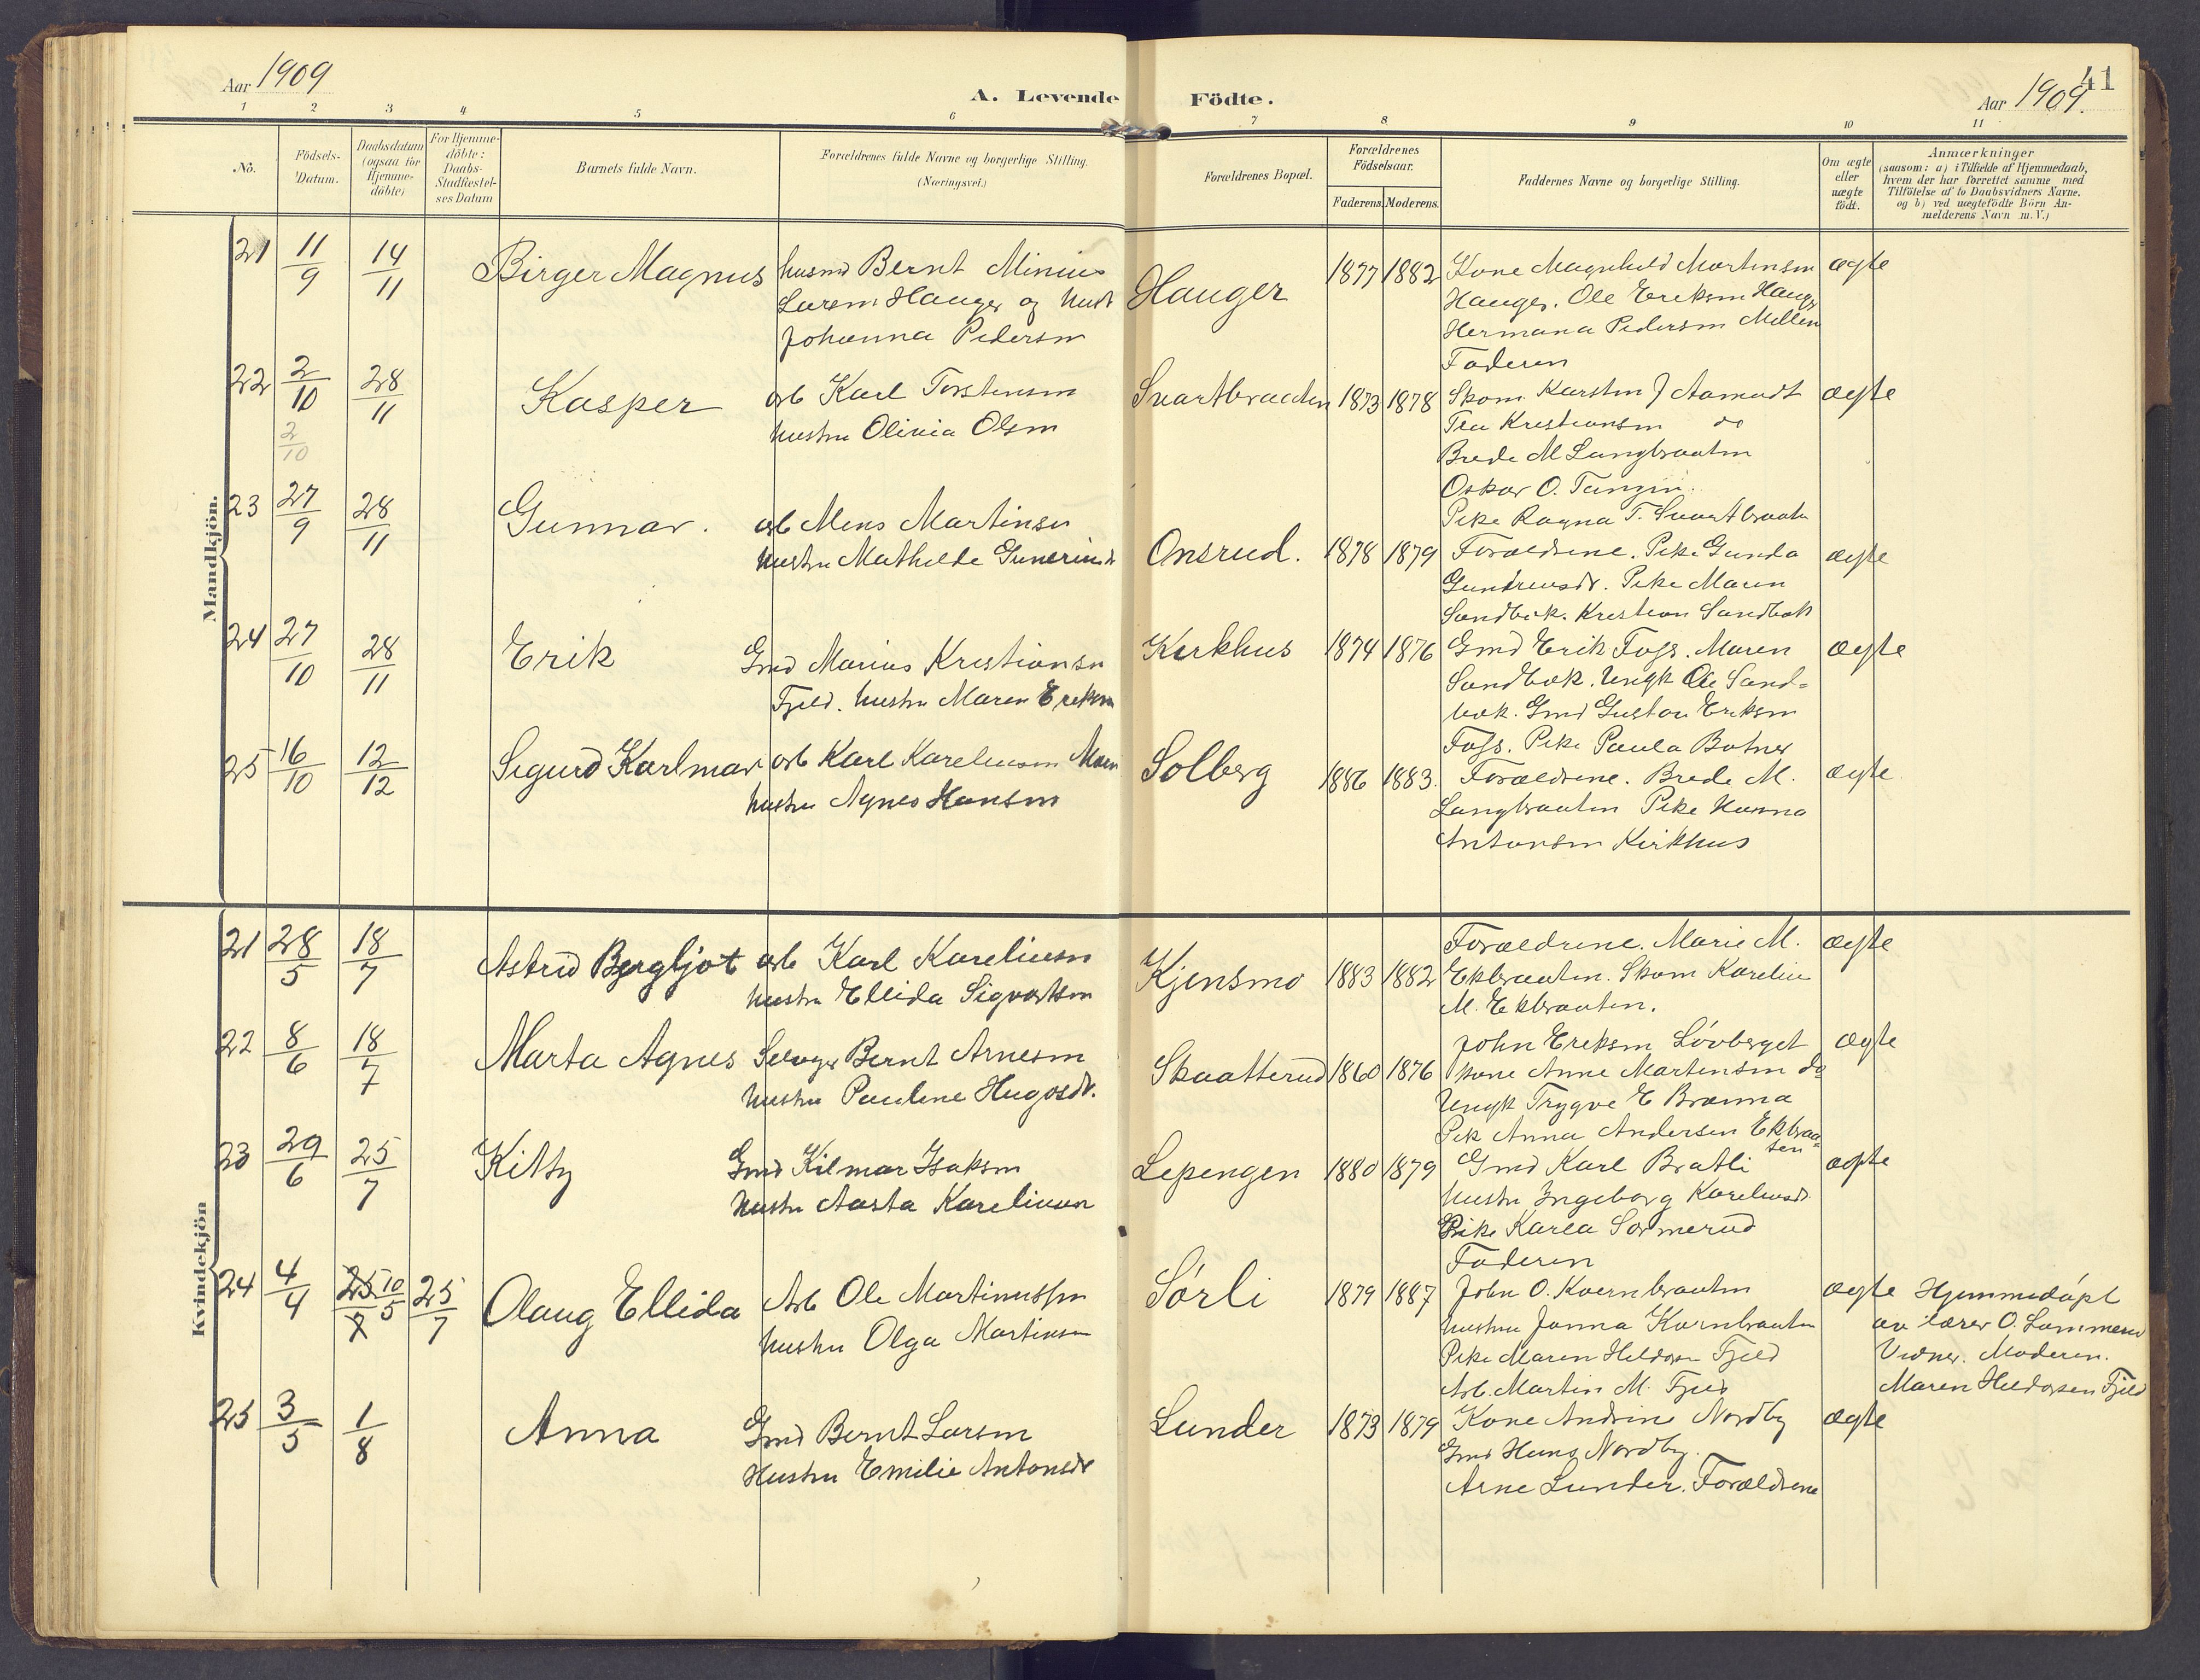 41
Aar 1909
A. Levende Födte.
Aar 1909.
1 2 3 4 5 6 7 8 9 10 11
No.
Födsels-
Datum.
Daabsdatum
(ogsaa for
Hjemme-
döbte)
For Hjemme-
döbte:
Daabs-
Stadfæstel-
ses Datum
Barnets fulde Navn.
Forældrenes fulde Navne og borgerlige Stilling.
(Næringsvei.)
Forældrenes Bopæl.
Forældrenes
Födselsaar.
Faderens. Moderens.
Faddernes Navne og borgerlige Stilling.
Om ægte
eller
uægte
födt.
Anmærkninger
(saasom: a) i Tilfælde af Hjemmedaab,
hvem der har forrettet samme med
Tilföielse af to Daabsvidners Navne.
og b) ved uægtefödte Börn An-
melderens Navn m. V.)
Mandkjön.
21 11/9 14/11 Birger Magnus
husmd Bernt Minius
Larsen Hauger og hustr
Johanna Pedersen
Hauger 1877 1882
Kone Magnhild Martinsen
Hauger. Ole Eriksen Hauger
Hermana Pedersen Mellen
Faderen
ægte
22 2/10 28/11 Kasper
2/10
arb Karl Torstensen
hustru Olivia Olsen
Svartbraaten 1873 1878
Skom. Karsten J Aamodt
Tea Kristiansen do
Brede M Langbraaten
Oskar O. Tangen.
Pike Ragna T. Svartbraaten
ægte
23 27/9 28/11 Gunnar.
arb Mens Martinsen
hustru Mathilde
Onsrud. 1878 1879
Forældrene. Pike Gunda
Pike Maren
Sandbæk. Kristian Sandbæk
ægte
24 27/10 28/11 Erik
Gmd Marius Kristiansen
Fjeld. hustru Maren Eriksen
Kirkhus 1874 1876
Gmd Erik Foss. Maren
Sandbæk. Ungk Ole Sand-
bæk. Gmd Gustav Eriksen
Foss. Pike Paula Botner
ægte
25 16/10 12/12 Sigurd Karlmar
arb Karl Kareliusen
hustru Agnes Hansen
Solberg 1886 1883.
Forældrene. Brede M.
Langbraaten Pike Hanna
Antonsen Kirkhus
ægte
Kvindekjön
21 28/5 18/7 Astrid Bergljot
arb Karl Kareliusen
hustru Ellida Sigvartsen
Kjensmo 1883 1882
Forældrene. Marie M.
Ekbraaten. Skom Karelius
M. Ekbraaten.
ægte
22 8/6 18/7 Marta Agnes
Selveger Bernt Arnesen
hustru Pauline Hugosdt.
Skaatterud 1860 1876
John Eriksen Lövberget
kone Anne Martinsen do
Ungk Trygve E Brænna
Pik Anna Andersen Ekbraa-
ten
ægte
23 29/6 25/7 Kitty
Gmd Hilmar Isaksen
hustru Aasta Kareliusen
Lepengen 1880 1879
Gmd Karl Bratli
hustru Ingeborg Kareliusdt.
Pike Karla Sormerud
Faderen
ægte
24 4/4 25/7 10/5 25/7 Olaug Ellida
Arb Ole Martinussen
hustru Olga Martinsen
Sörli 1879 1887
John O. Kvernbraaten
hustru Janna Kvernbraaten
Pike Maren Heldorsen Fjeld
Arb. Martin M. Fjeld
ægte
Hjemmedöpt
av lærer O. Lommerud
Vidner. Moderen.
Maren Heldorsen Fjeld
25 3/5 1/8 Anna
Gmd Bernt Larsen
Hustru Emilie Antonsdt
Lunder 1873 1879
Kone Andrine Nordby
Gmd Hans Nordby.
Arne Lunder. Forældrene
ægte